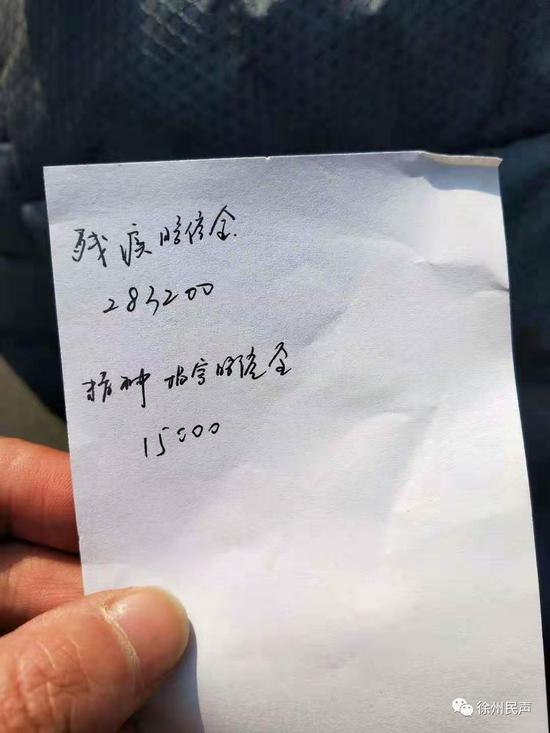 残疾赔偿金
283200
精神损害赔偿金
15000
徐州民声